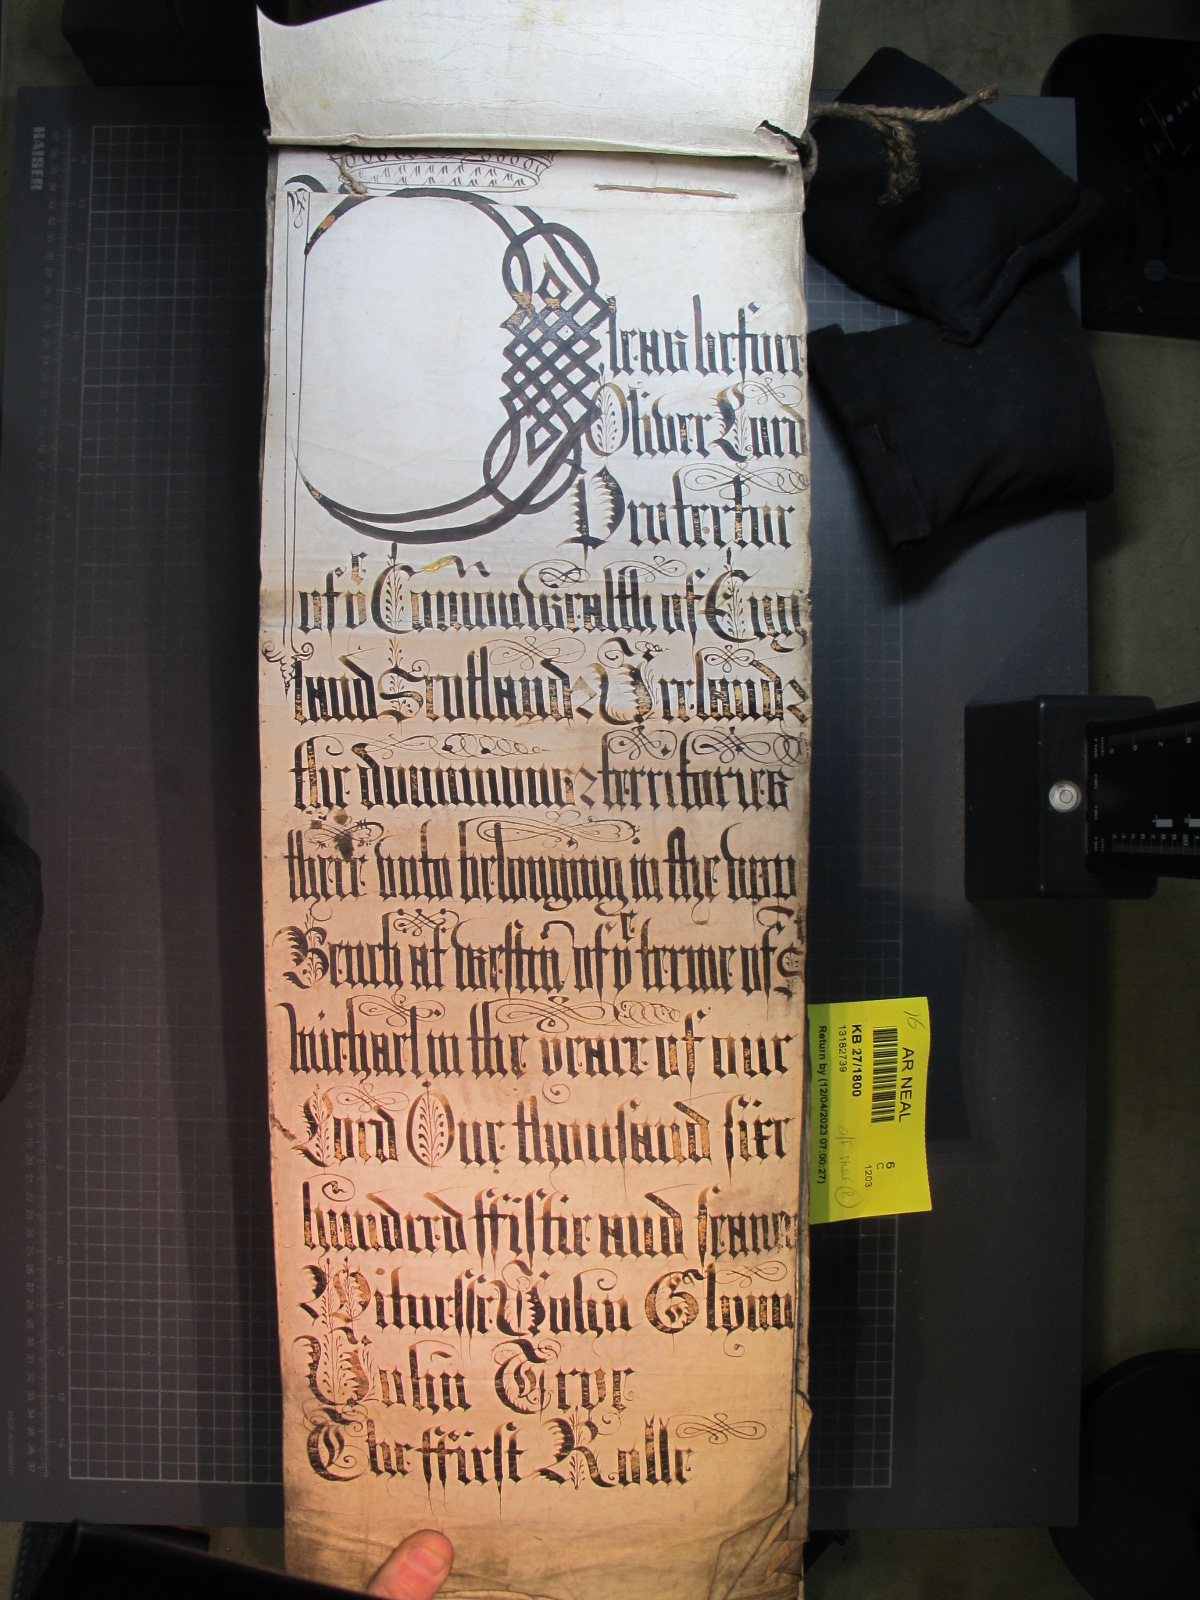 Pleas before
Oliver Lord
Protector
of yͤ Com̃onwealth of Eng
land Scotland & Ireland &
the dominions & territories
there unto belonging in the upp
Bench at Westm̃ of yͤ terme of Sͭ
Michael in the yeare of our
Lord One thousand sixe
hundred ffiftie and seaven
Witnesse John Glynn
John Trye
The ffirst Rolle
KAISER
16
AR NEAL
KB 27/1800
13182739
Return by (12/04/2023 07:00:27)
6
C
1203